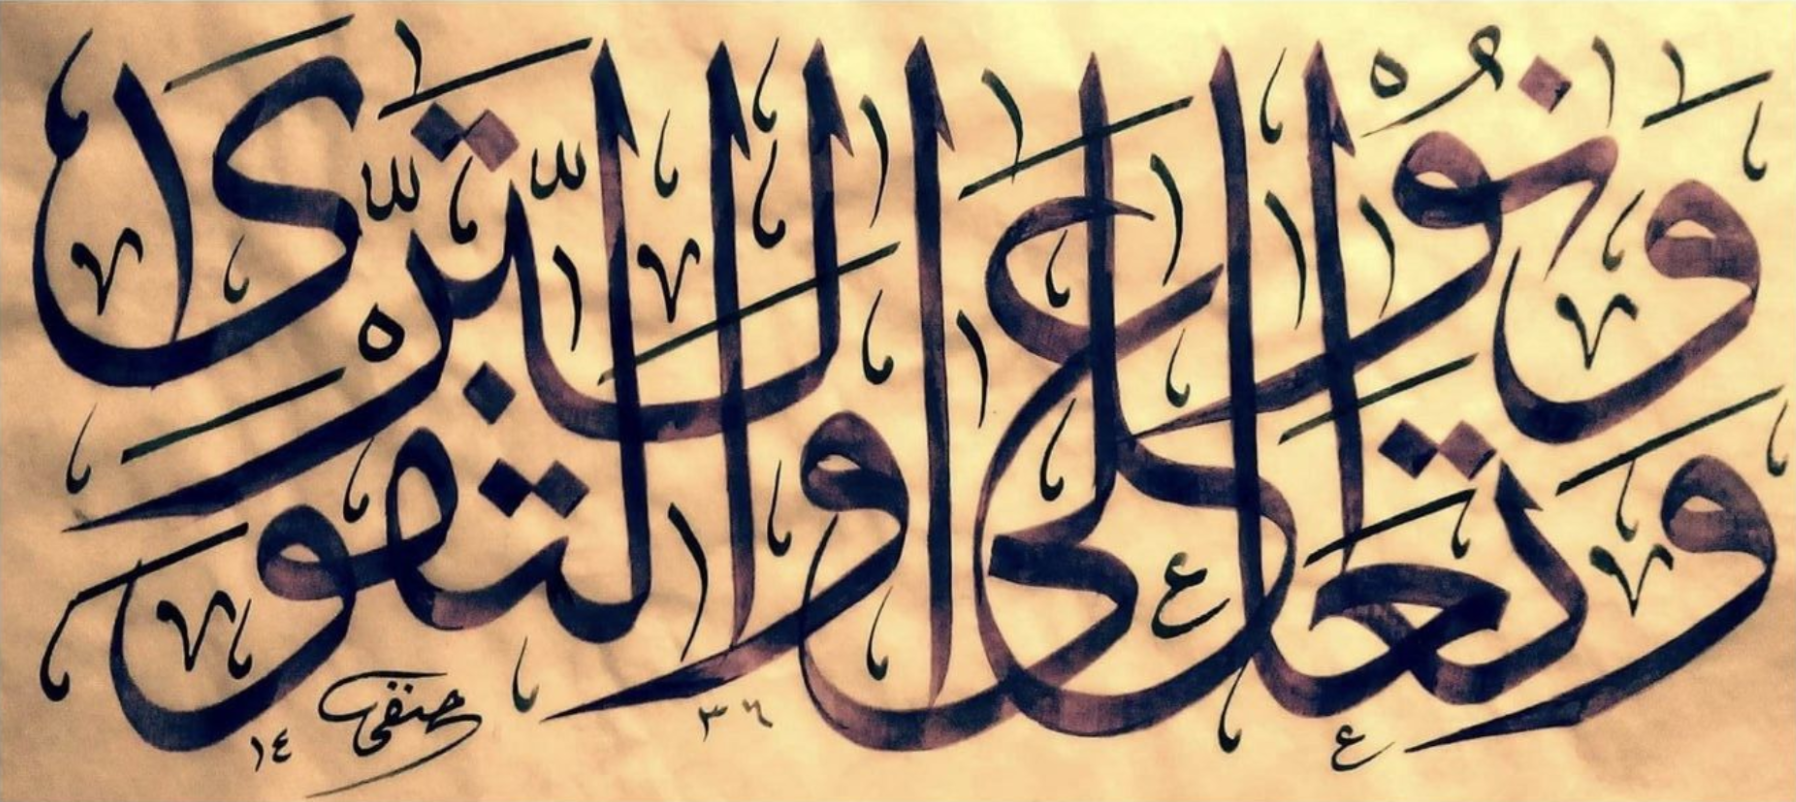 وَتَعَاوَنُوا عَلَى الْبِرِّ وَالتَّقْوَى
حنفي
١٤ ٣٦